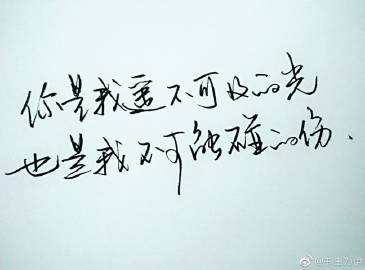 你是我遥不可及的光
也是我不可触碰的伤.